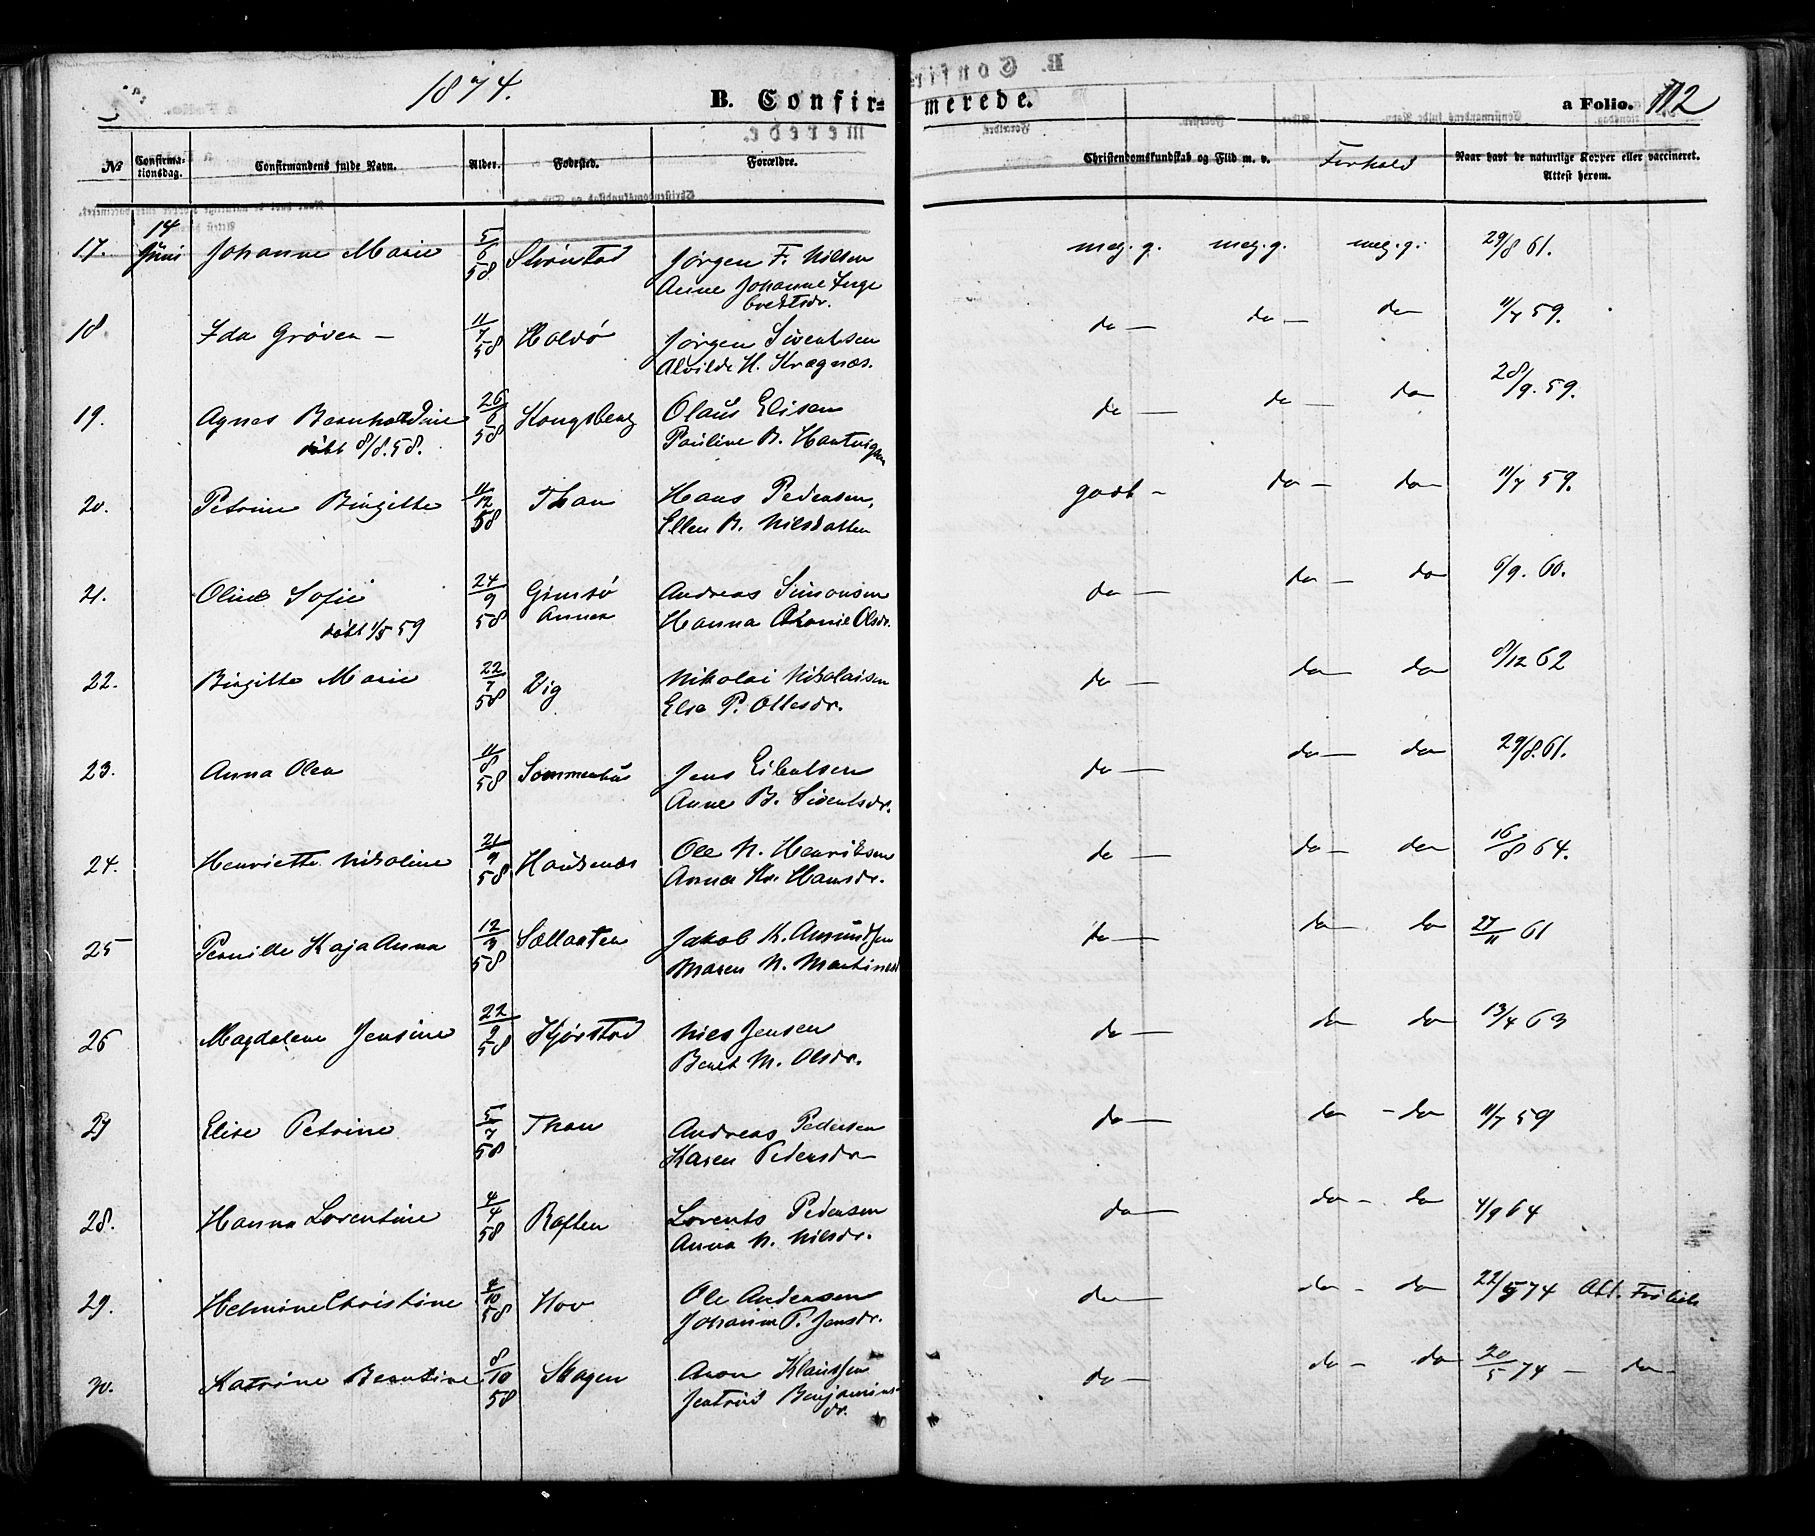 1874.
B. Confir-
merede.
a Folio. 112
№ Confirma-tionsdag. Confirmandens fulde Navn. Alder. Fødested. Forældre. Christendomskundskab og Flid m. v. Forhold Naar havt de naturlige Kopper eller vaccineret. Attest herom.
17. 14 Juni Johanne Marie 5/6 58 Jørgen F. Nilsen meg. g. meg. g. meg. g. 29/8 61.
Anne Johanne Inge
brektsdr.
18 Ida Grøven — 11/7 58 Holdø Jørgen Siverthsen do — do — do 11/7 59.
Alvilde H. Kragnæs.
19. Agnes Bernhardine 26/6 58 Kongsberg Olaus Elisen do — do — do 28/9. 59.
døbt 8/8. 58. Pauline B. Hartvigsen
20. Petrine Birgitte 11/12 58 Than Hans Pedersen, godt - do — do 11/7 59.
Ellen B. Nilsdatter
21. Oline Sofie 24/9 58 Gimsø Annex Andreas Simonsen do — do — do 6/9. 60.
døbt 1/5 59 Hanna Olsdr.
22. Birgitte Marie 22/7 58 Vig Nikolai Nikolaisen do — do — do 8/12 62
Else P. Ottesdr.
23. Anna Olea 11/8 58 Sommerhus Jens Eilertsen do — do — do 29/8. 61.
Anne B. Sivertsdr.
24. Henriette Nikoline 21/9 58 Haugenæs Ole N. Henriksen do — do — do 16/8 64.
Anna Kr. Hansdr.
25 Pernille Kaja Anna 12/3 58 Sellaater Jakob K. Amundsen do — do — do 27/11 61
Maren N. Martinesd
26 Magdalene Jensine 22/9 58 Kjørstad Niels Jensen do — do — do 13/4 63
Beret M. Olsdr.
27 Elise Petrine 5/7 58 Than Andreas Pedersen do — do — do 11/7 59
Karen Pedersdr
28. Hanna Lorentine 4/4 58 Raften Lorents Pedersen do — do - do 4/9 64
Anna N. Nilsdr.
29. Helmine Christine 4/10 58 Hov Ole Andersen do — do - do 22/5 74 Att. Frølich
Johanne P. Jensdr.
30. Katrine Berntine 8/10 58 Skagen Aron Klausen do — do - do 20/5 74 — do -
Jertrud Benjamins
dr.